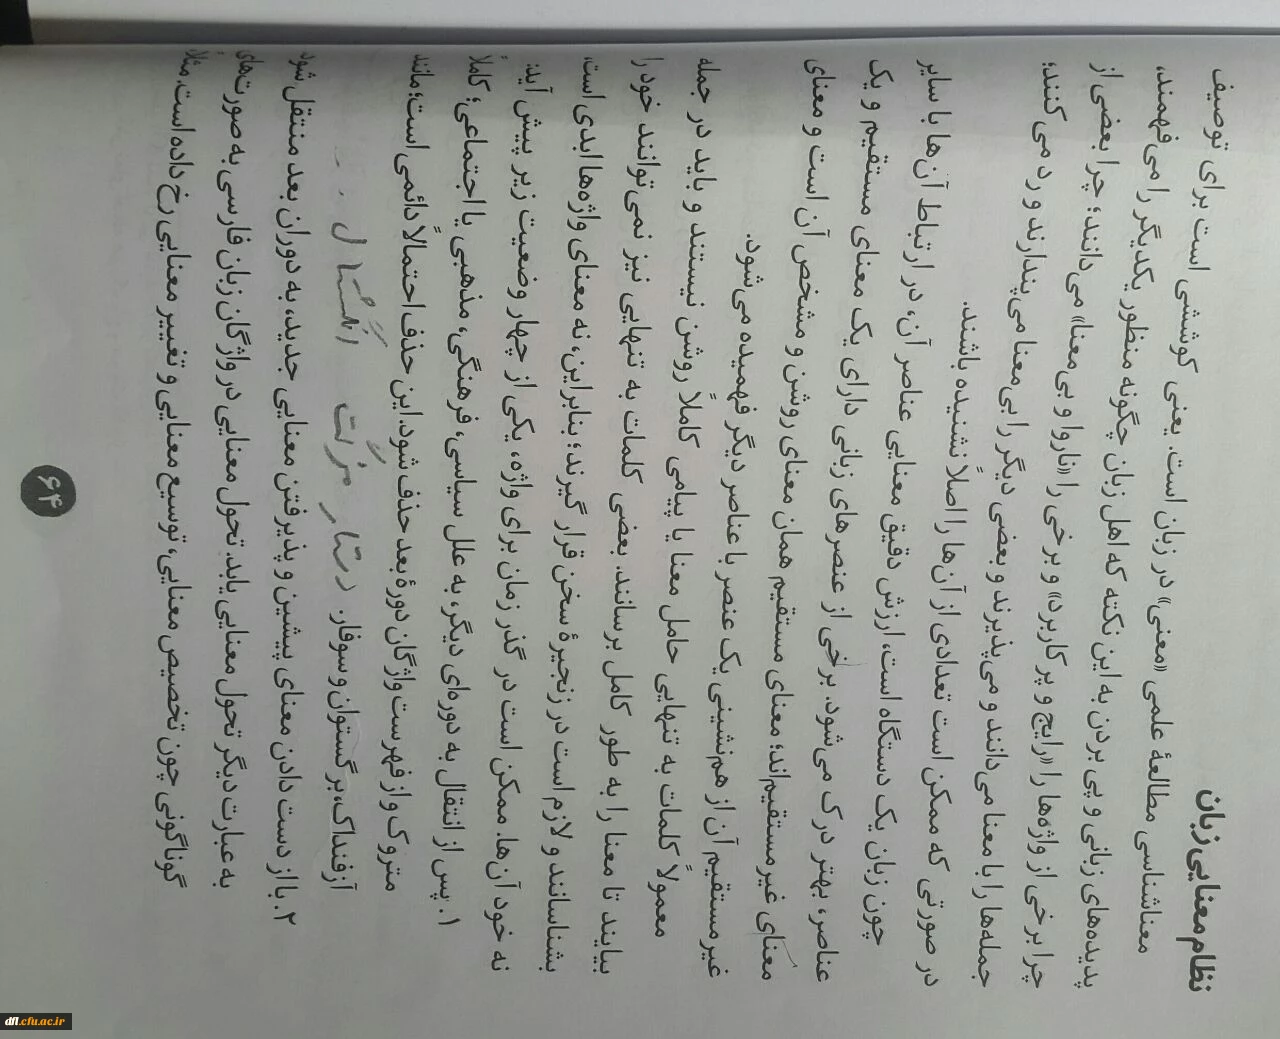 نظام معنایی زبان
معناشناسی مطالعهٔ علمی «معنی» در زبان است. یعنی کوششی است برای توصیف
پدیده‌های زبانی و پی بردن به این نکته که اهل زبان چگونه منظور یکدیگر را می‌فهمند،
چرا برخی از واژه‌ها را «رایج و پر کاربرد» و برخی را «ناروا و بی‌معنا» می‌دانند؛ چرا بعضی از
جمله‌ها را با معنا می‌دانند و می‌پذیرند و بعضی دیگر را بی‌معنا می‌پندارند و رد می‌کنند؛
در صورتی که ممکن است تعدادی از آن‌ها را اصلاً نشنیده باشند.
چون زبان یک دستگاه است، ارزش دقیق معنایی عناصر آن، در ارتباط آن‌ها با سایر
عناصر، بهتر درک می‌شود. برخی از عنصرهای زبانی دارای یک معنای مستقیم و یک
معنای غیرمستقیم‌اند؛ معنای مستقیم همان معنای روشن و مشخص آن است و معنای
غیرمستقیم آن از هم‌نشینی یک عنصر با عناصر دیگر فهمیده می‌شود.
معمولاً کلمات به تنهایی حامل معنا یا پیامی کاملاً روشن نیستند و باید در جمله
بیایند تا معنا را به طور کامل برسانند. بعضی کلمات به تنهایی نیز نمی‌توانند خود را
بشناسانند و لازم است در زنجیرهٔ سخن قرار گیرند؛ بنابراین، نه معنای واژه‌ها ابدی است،
نه خود آن‌ها. ممکن است در گذر زمان برای واژه، یکی از چهار وضعیت زیر پیش آید:
۱. پس از انتقال به دوره‌ای دیگر، به علل سیاسی، فرهنگی، مذهبی یا اجتماعی؛ کاملاً
متروک و از فهرست واژگان دورهٔ بعد حذف شود. این حذف احتمالاً دائمی است؛ مانند
آزفنداک، برگستوان و سوفار.
۲. با از دست دادن معنای پیشین و پذیرفتن معنایی جدید، به دوران بعد منتقل شود
به عبارت دیگر تحول معنایی یابد. تحول معنایی در واژگان زبان فارسی به صورت‌های
گوناگونی چون تخصیص معنایی، توسیع معنایی و تغییر معنایی رخ داده است. مثلاً
۶۴
dfl.cfu.ac.ir